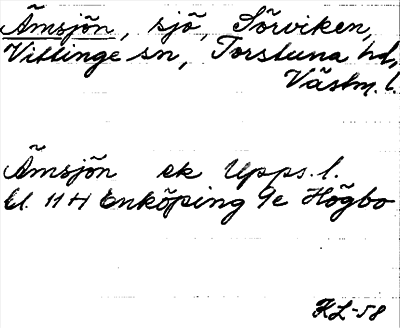 Ämsjön, sjö, Sörviken,
Vittinge sn, Torstuna hd,
Västm. l.
Ämsjön ek Upps. l.
El. 11 H Enköping 9e Högbo
KL-58